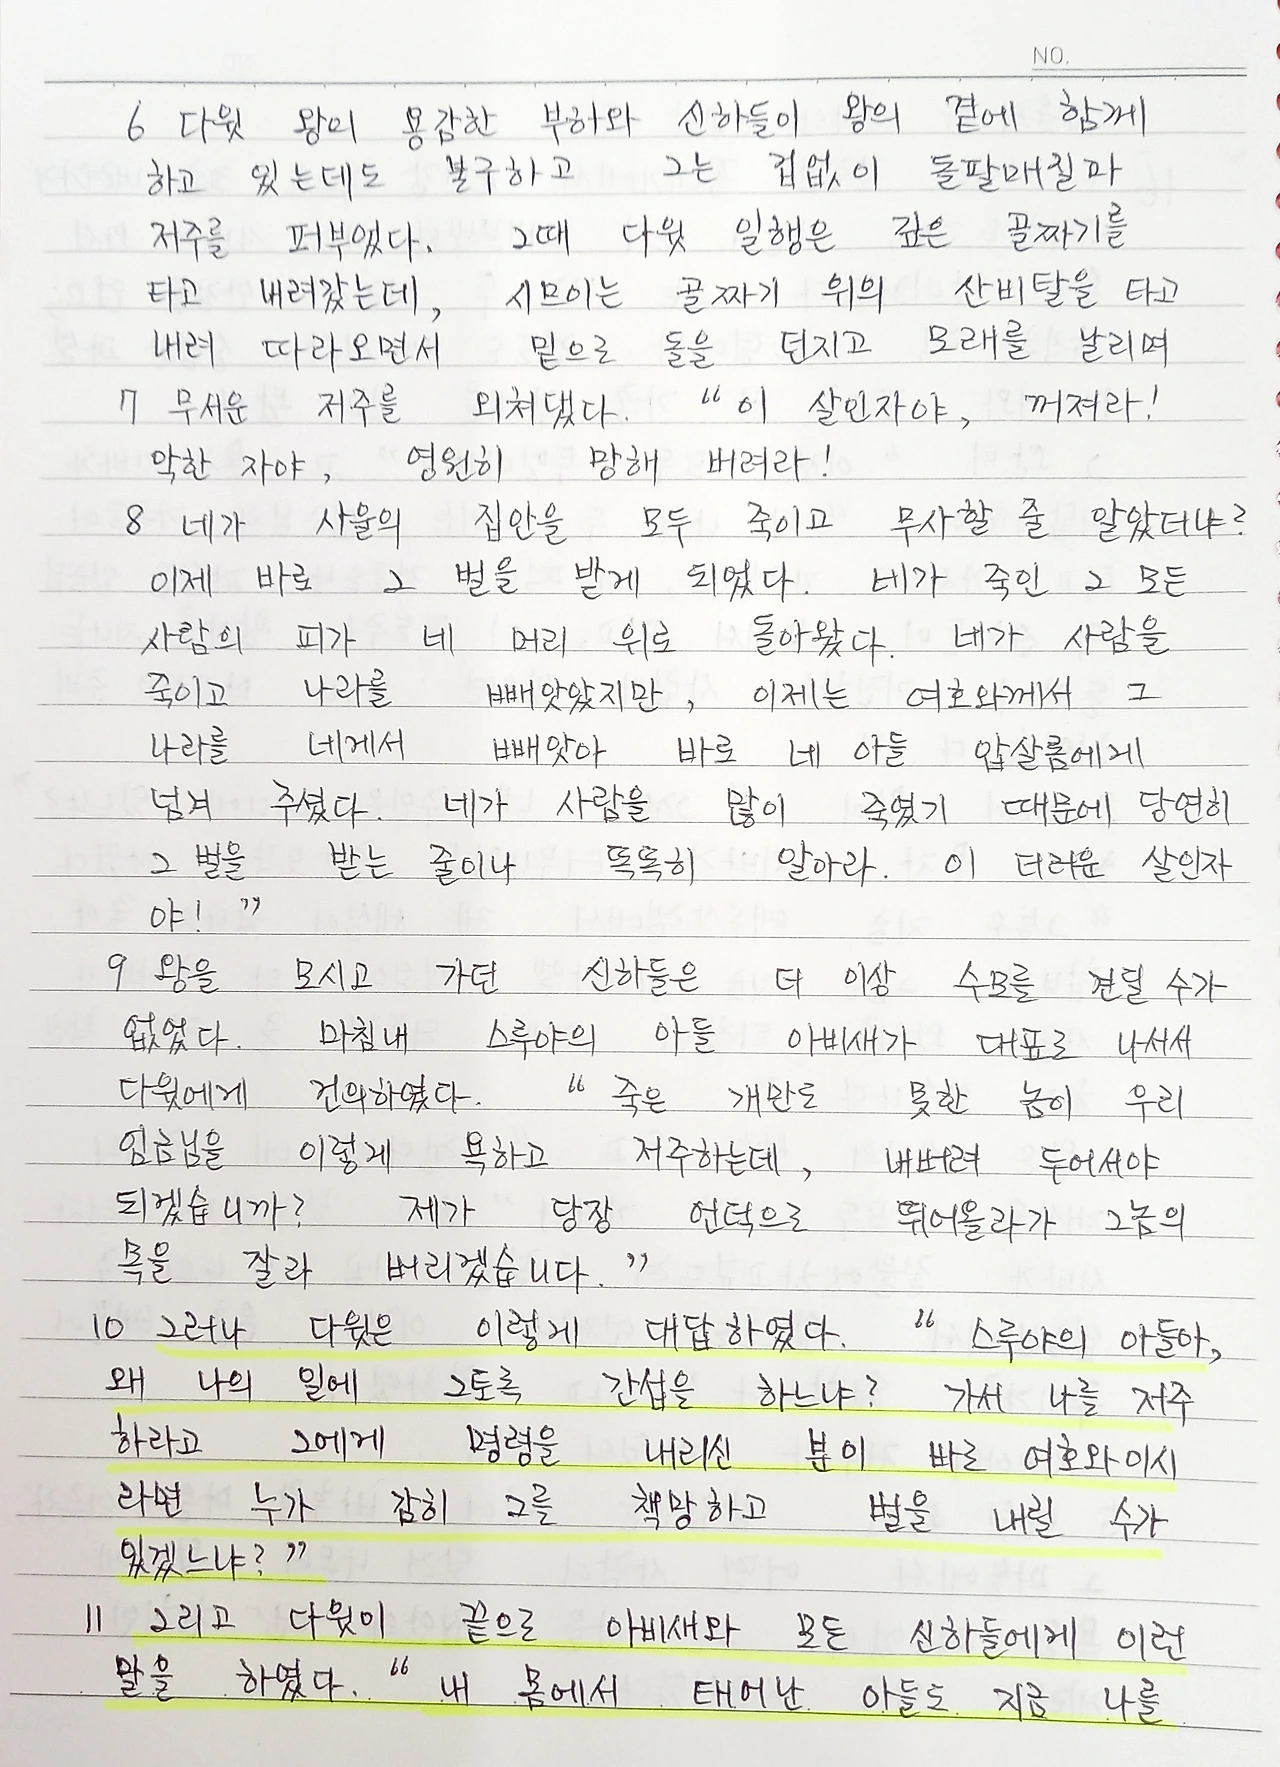 NO.
6 다윗 왕의 용감한 부하와 신하들이 왕의 곁에 함께
하고 있는데도 불구하고 그는 겁없이 돌팔매질과
저주를 퍼부었다. 그때 다윗 일행은 깊은 골짜기를
타고 내려갔는데, 시므이는 골짜기 위의 산비탈을 타고
내려 따라오면서 밑으로 돌을 던지고 모래를 날리며
7 무서운 저주를 외쳐댔다. "이 살인자야, 꺼져라!
악한 자야, 영원히 망해 버려라!
8 네가 사울의 집안을 모두 죽이고 무사할 줄 알았더냐?
이제 바로 그 벌을 받게 되었다. 네가 죽인 그 모든
사람의 피가 네 머리 위로 돌아왔다. 네가 사람을
죽이고 나라를 빼앗았지만, 이제는 여호와께서 그
나라를 네게서 빼앗아 바로 네 아들 압살롬에게
넘겨 주셨다. 네가 사람을 많이 죽였기 때문에 당연히
그 벌을 받는 줄이나 똑똑히 알아라. 이 더러운 살인자
야! "
9 왕을 모시고 가던 신하들은 더 이상 수모를 견딜 수가
없었다. 마침내 스루야의 아들 아비새가 대표로 나서서
다윗에게 건의하였다. "죽은 개만도 못한 놈이 우리
임금님을 이렇게 욕하고 저주하는데, 내버려 두어서야
되겠습니까? 제가 당장 언덕으로 뛰어올라가 그놈의
목을 잘라 버리겠습니다."
10 그러나 다윗은 이렇게 대답하였다. "스루야의 아들아,
왜 나의 일에 그토록 간섭을 하느냐? 가서 나를 저주
하라고 그에게 명령을 내리신 분이 바로 여호와이시
라면 누가 감히 그를 책망하고 벌을 내릴 수가
있겠느냐?"
11 그리고 다윗이 끝으로 아비새와 모든 신하들에게 이런
말을 하였다. "내 몸에서 태어난 아들도 지금 나를